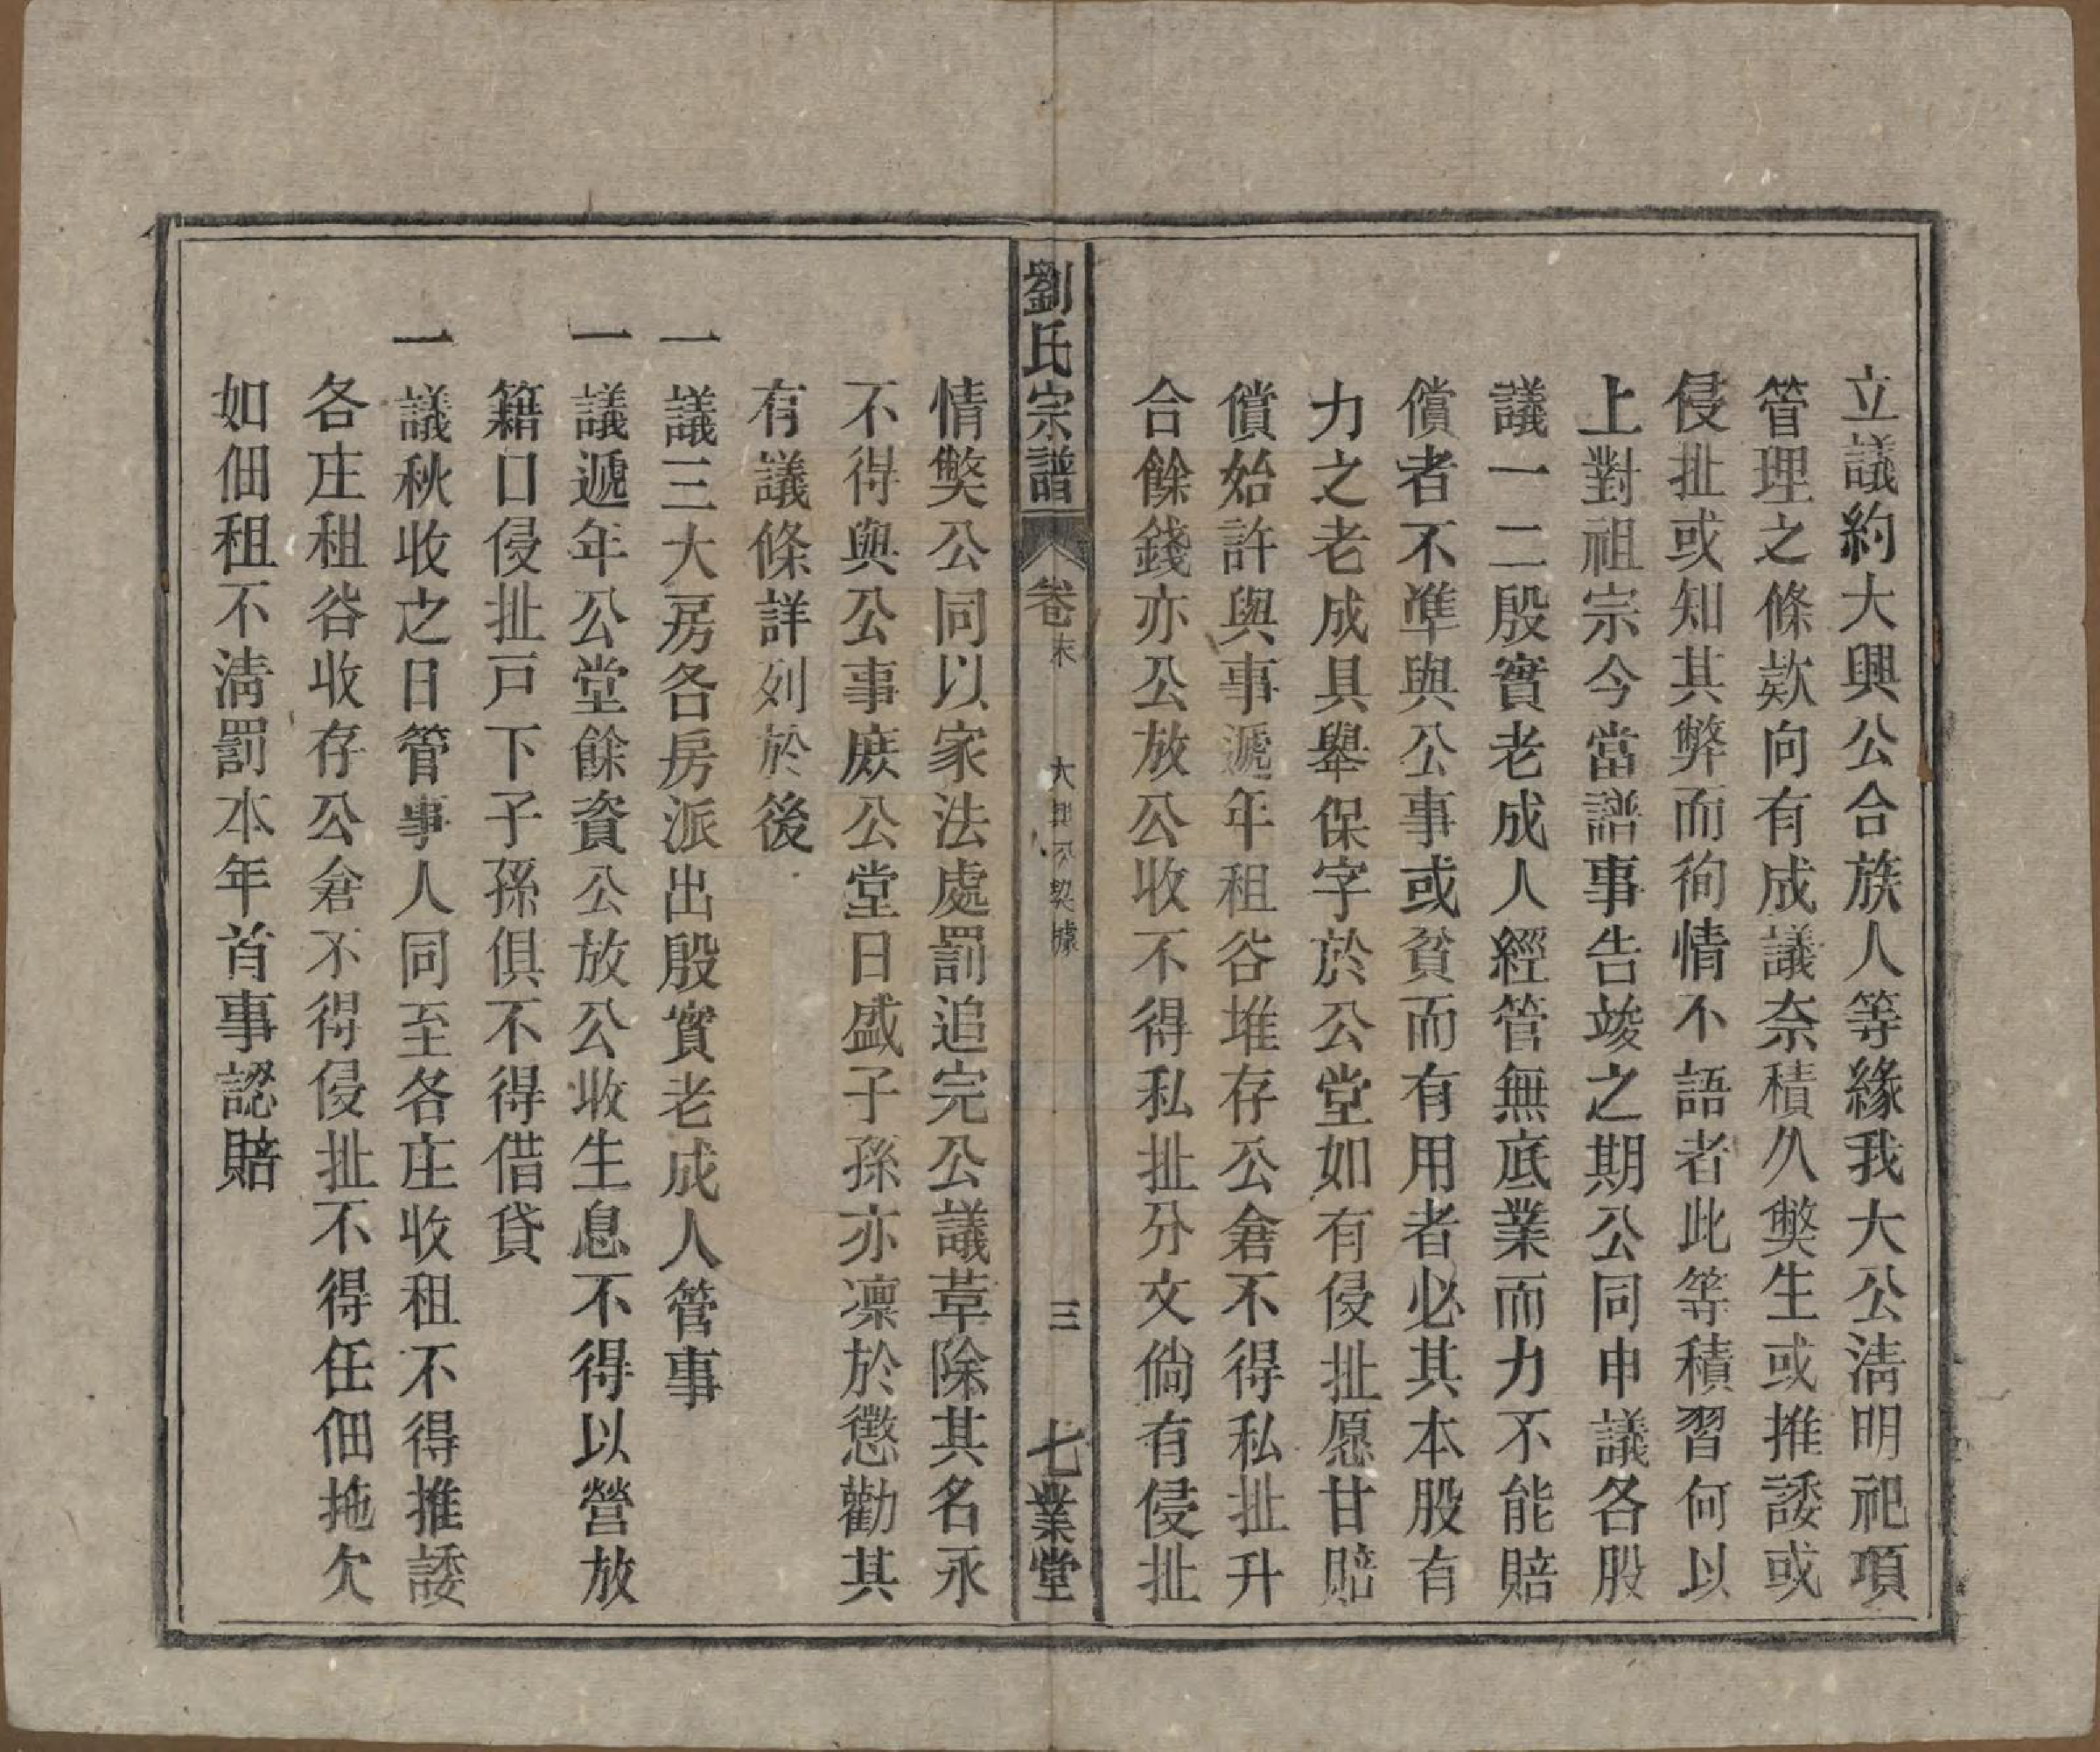 立議約大興公合族人等緣我大公淸明祀項
管理之條欵向有成議奈積久獘生或推諉或
侵扯或知其弊而徇情不語者此等積習何以
上對祖宗今當譜事告竣之期公同申議各股
議一二殷實老成人經管無底業而力不能賠
償者不準與公事或貧而有用者必其本股有
力之老成具舉保字於公堂如有侵扯愿甘賠
償始許與事遞年租谷堆存公倉不得私扯升
合餘錢亦公放公收不得私扯分文倘有侵扯
劉氏宗譜 卷末 大興公契據 三 七業堂
情獘公同以家法處罰追完公議革除其名永
不得與公事庻公堂日盛子孫亦凜於懲勸其
有議條詳列於後
一議三大房各房派出殷實老成人管事
一議遞年公堂餘資公放公收生息不得以營放
籍口侵扯戸下子孫俱不得借貸
一議秋收之日管事人同至各庄收租不得推諉
各庄租谷收存公倉不得侵扯不得任佃拖欠
如佃租不淸罰本年首事認賠